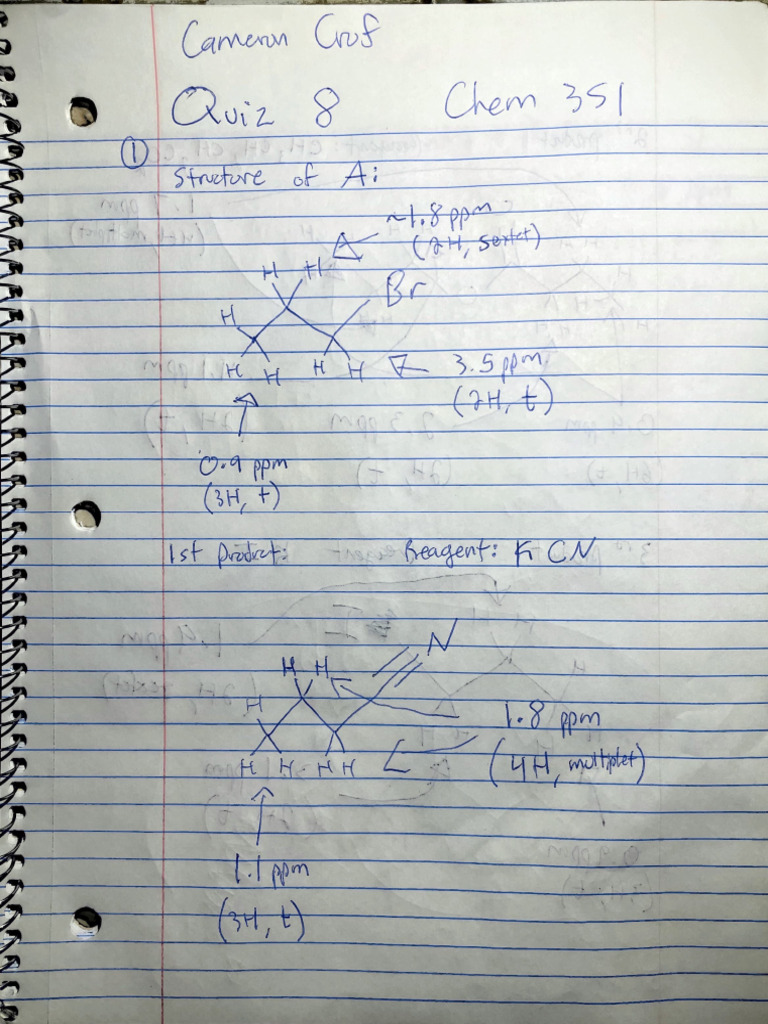 Cameron Crof
Quiz 8 Chem 351
① Structure of A:
~1.8 ppm
(2H, sextet)
H H
Br
H
H H H H
3.5 ppm
(2H, t)
0.9 ppm
(3H, t)
1st Product: Reagent: KCN
N
H H
H
1.8 ppm
H H H H
(4H, multiplet)
1.1 ppm
(3H, t)